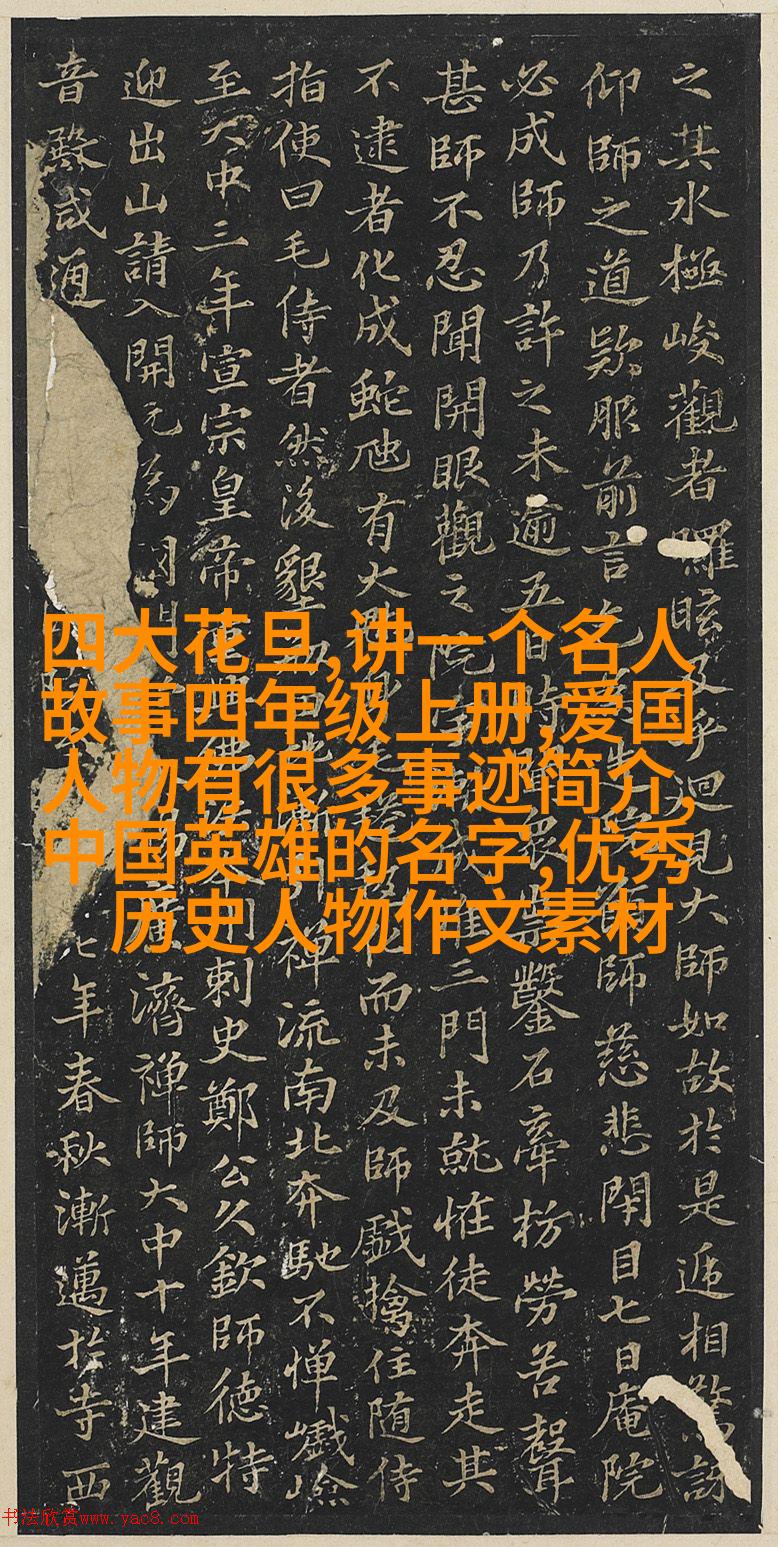 之其水極峻觀者眩迴見大師如故於是遞相驚訝
仰師之道欵服前言師慈悲閑目七日庵院
必成師乃許之未逾五鑿石牽枋勞苦聲
甚師不忍聞開眼觀之院三門未就恠徒奔走其
不逮者化成蛇虺有大而未及師戲擒住随侍
指使曰毛侍者然後墾禪流南北奔馳不憚巇嶮
至大中三年宣宗皇帝刺史鄭公久欽師德特
迎出山請入開元為濟禪師大中十年建觀
音殿咸通七年春秋漸邁於寺西
四大花旦,讲一个名人
故事四年级上册,爱国
人物有很多事迹简介,
中国英雄的名字,优秀
历史人物作文素材
书法欣赏www.yac8.com